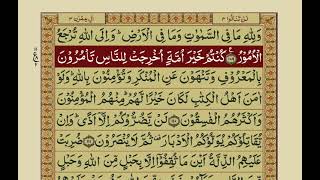 وَلِلّٰهِ مَا فِى السَّمٰوٰتِ وَمَا فِى الْاَرْضِ ؕ وَاِلَى اللّٰهِ تُرْجَعُ
الْاُمُوْرُ ﴿۱۰۹﴾ كُنْتُمْ خَيْرَ اُمَّةٍ اُخْرِجَتْ لِلنَّاسِ تَاْمُرُوْنَ
بِالْمَعْرُوْفِ وَتَنْهَوْنَ عَنِ الْمُنْكَرِ وَتُؤْمِنُوْنَ بِاللّٰهِ ؕ وَلَوْ
اٰمَنَ اَهْلُ الْكِتٰبِ لَكَانَ خَيْرًا لَّهُمْ ؕ مِنْهُمُ الْمُؤْمِنُوْنَ
وَاَكْثَرُهُمُ الْفٰسِقُوْنَ ﴿۱۱۰﴾ لَنْ يَّضُرُّوْكُمْ اِلَّاۤ اَذًى ؕ وَاِنْ
يُّقَاتِلُوْكُمْ يُوَلُّوْكُمُ الْاَدْبَارَ ۫ ثُمَّ لَا يُنْصَرُوْنَ ﴿۱۱۱﴾ ضُرِبَتْ
عَلَيْهِمُ الذِّلَّةُ اَيْنَ مَا ثُقِفُوْۤا اِلَّا بِحَبْلٍ مِّنَ اللّٰهِ وَحَبْلٍ